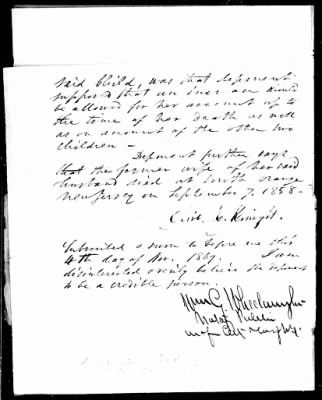 said Child, was that deponent
supposed that an increase would
be allowed for her account up to
the time of her death as well
as on account of the other two
children –
Deponent further says
that the former wife of her said
husband died at South Orange
New Jersey on September 7, 1858 -
C. Knight.
Subscribed & sworn to before me this
4th day of Nov. 1869. I am
disinterested & verily believe the deponent
to be a credible person.
Wm G.
Notary Public